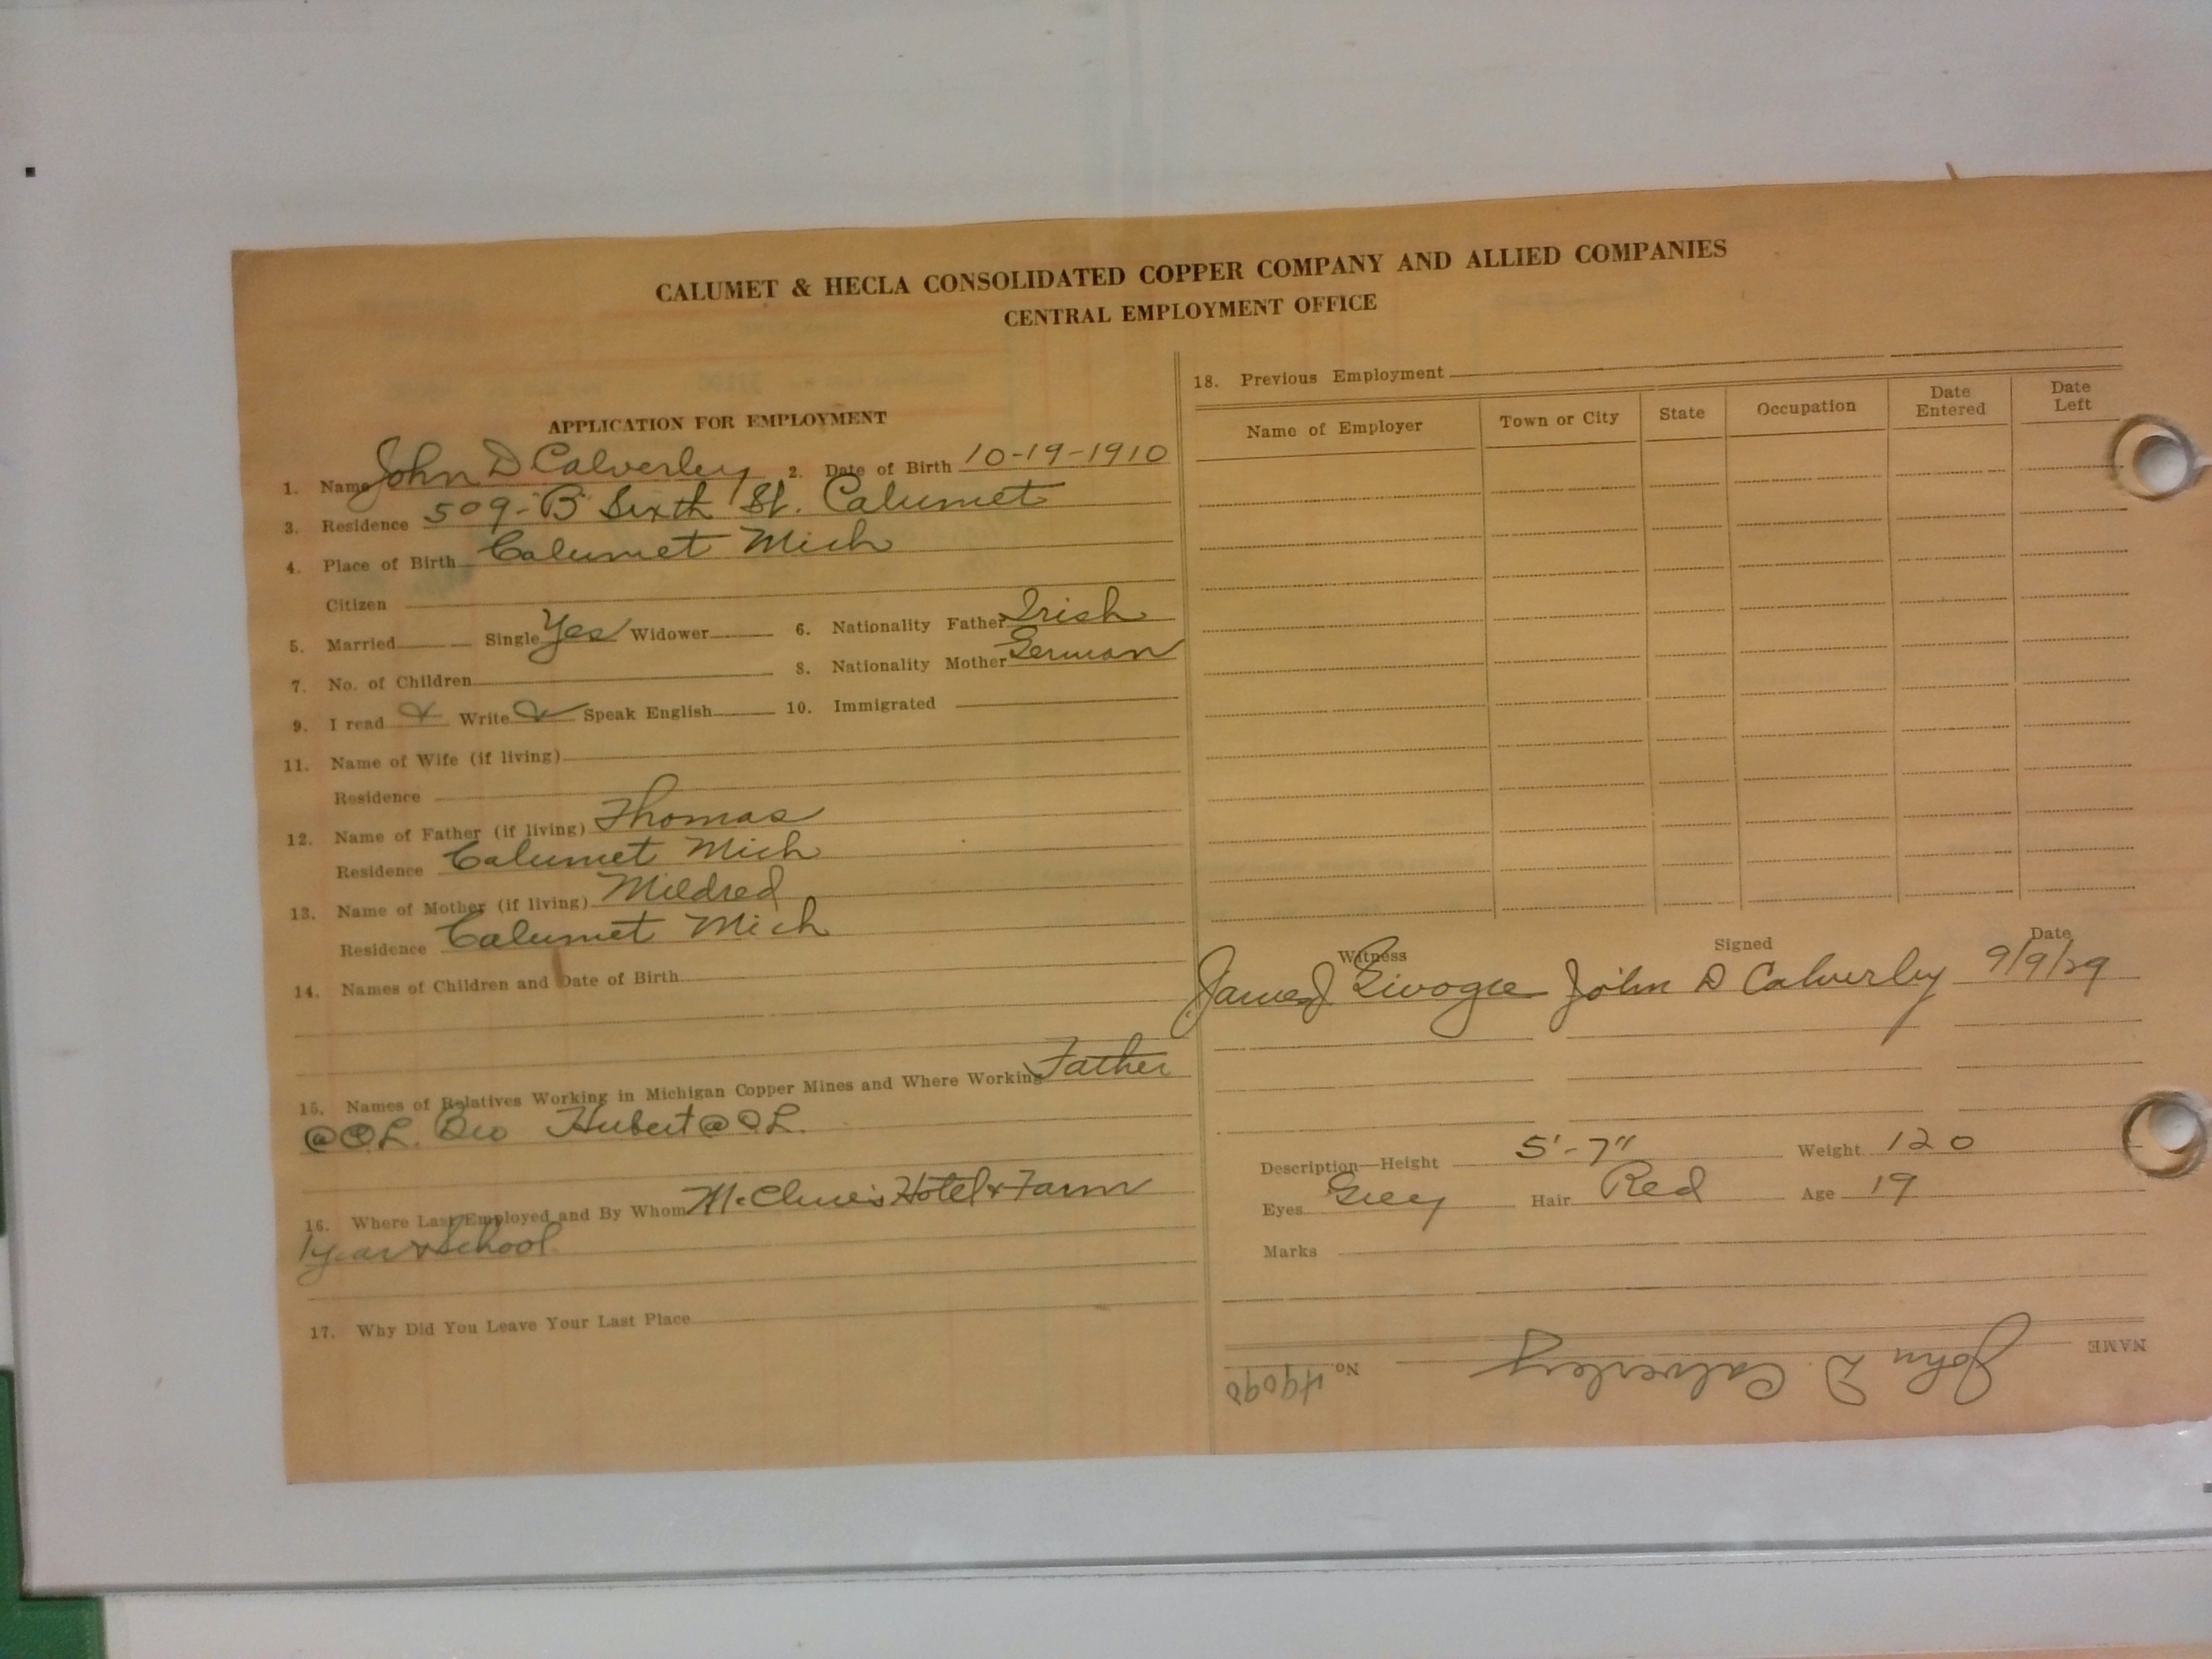 CALUMET & HECLA CONSOLIDATED COPPER COMPANY AND ALLIED COMPANIES
CENTRAL EMPLOYMENT OFFICE
APPLICATION FOR EMPLOYMENT
1. Name John D Calverley 2. Date of Birth 10-19-1910
3. Residence 509-B Sixth St. Calumet
4. Place of Birth Calumet Mich
Citizen
5. Married Single Yes Widower 6. Nationality Father Irish
7. No. of Children 8. Nationality Mother German
9. I read Write Speak English 10. Immigrated
11. Name of Wife (if living)
Residence
12. Name of Father (if living) Thomas
Residence Calumet Mich
13. Name of Mother (if living) Mildred
Residence Calumet Mich
14. Names of Children and Date of Birth
15. Names of Relatives Working in Michigan Copper Mines and Where Working Father
@ Hubert @
16. Where Last Employed and By Whom Hotel & Farm
1 year & School
17. Why Did You Leave Your Last Place
18. Previous Employment
Name of Employer Town or City State Occupation Date Entered Date Left
Witness Signed Date
James J John D Calverley 9/9/29
Description—Height 5'-7" Weight 120
Eyes Grey Hair Red Age 19
Marks
NAME John D Calverley No. 49090